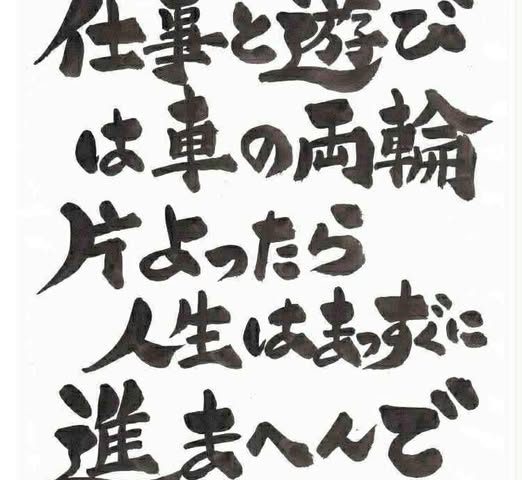 仕事と遊び
は車の両輪
片よったら
人生はまっすぐに
進まへんで